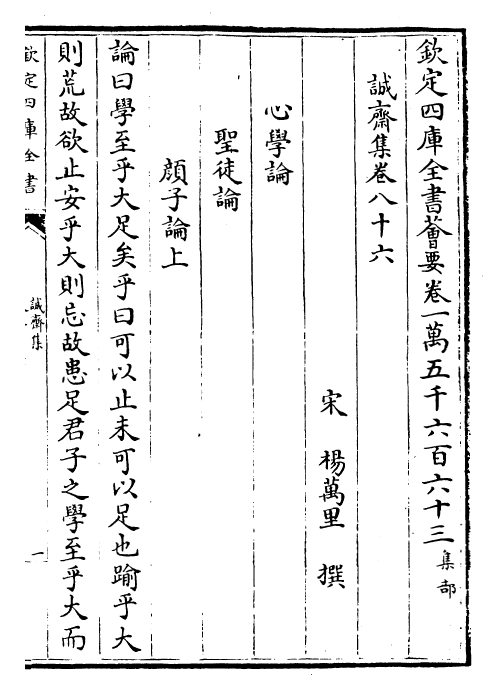 欽定四庫全書薈要卷一萬五千六百六十三集部
誠齋集卷八十六
宋 楊萬里 撰
心學論
聖徒論
顔子論上
論曰學至乎大足矣乎曰可以止未可以足也踰乎大
則荒故欲止安乎大則忘故患足君子之學至乎大而
欽定四庫全書
誠齋集
一